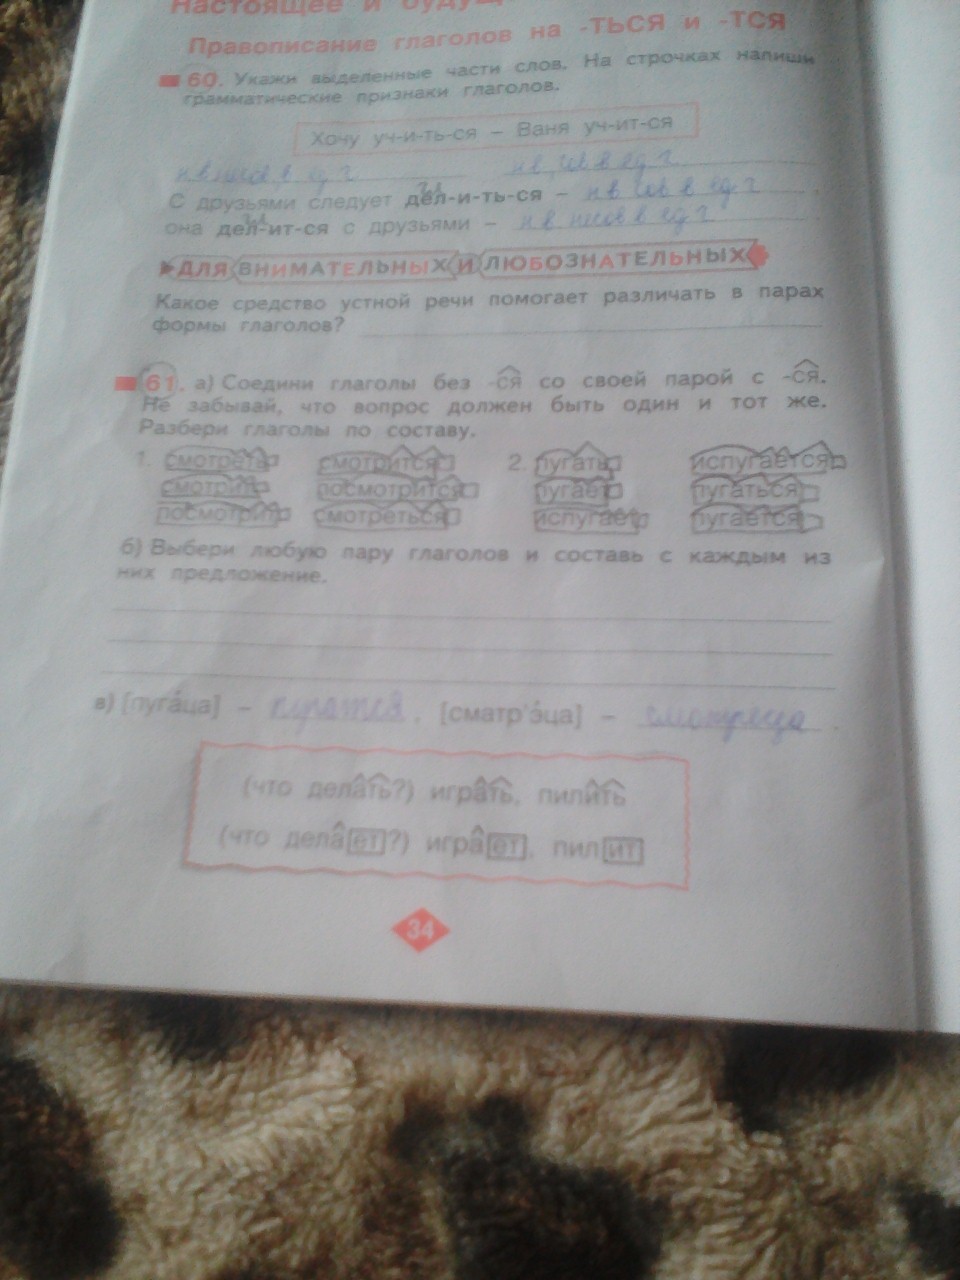 Настоящее и будущ
Правописание глаголов на -ТЬСЯ и -ТСЯ
60. Укажи выделенные части слов. На строчках напиши
грамматические признаки глаголов.
Хочу уч-и-ть-ся – Ваня уч-ит-ся
ед г нв, сов в ед г
С друзьями следует дел-и-ть-ся – нв сов в ед г .
она дел-ит-ся с друзьями – нв несов в ед г
ДЛЯ ВНИМАТЕЛЬНЫХ И ЛЮБОЗНАТЕЛЬНЫХ
Какое средство устной речи помогает различать в парах
формы глаголов?
61. а) Соедини глаголы без -ся со своей парой с -ся.
Не забывай, что вопрос должен быть один и тот же.
Разбери глаголы по составу.
1. смотреть смотрится 2. пугать испугается
смотрит посмотрится пугает пугаться
посмотрит смотреться испугает пугается
б) Выбери любую пару глаголов и составь с каждым из
них предложение.
в) [пуга́ца] – , [сматр'э́ца] – .
(что делать?) играть, пилить
(что делает?) играет, пилит
34